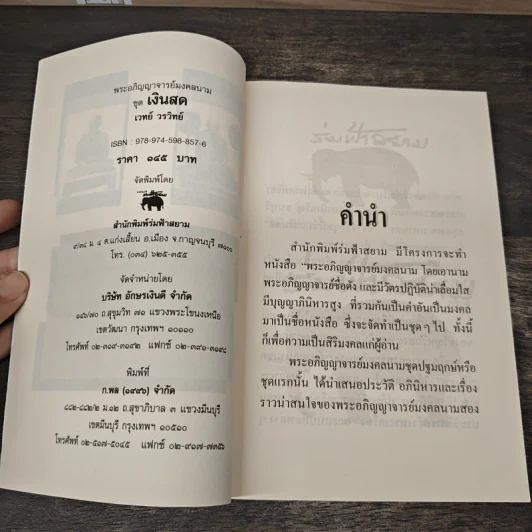 พระอภิญญาจารย์มงคลนาม
ชุด เงินสด
เวทย์ วรวิทย์
ISBN : 978-974-598-857-6
ราคา ๑๔๕ บาท
จัดพิมพ์โดย
สำนักพิมพ์ร่มฟ้าสยาม
๙/๓๔ ม. ๔ ต.แก่งเสี้ยน อ.เมือง จ.กาญจนบุรี ๗๑๐๐๐
โทร. (๐๓๔) ๖๒๕-๓๕๕
จัดจำหน่ายโดย
บริษัท อักษรเงินดี จำกัด
๑๔๖/๗๐ ถ.สุขุมวิท ๗๐ แขวงพระโขนงเหนือ
เขตวัฒนา กรุงเทพฯ ๑๐๑๑๐
โทรศัพท์ ๐๒-๓๑๙-๓๑๙๒ แฟกซ์ ๐๒-๓๙๑-๓๑๙๔
พิมพ์ที่
ก.พล (๑๙๙๖) จำกัด
๘๔๒-๘๔๒/๒ ม.๑๒ ถ.สุขาภิบาล ๓ แขวงมีนบุรี
เขตมีนบุรี กรุงเทพฯ ๑๐๕๑๐
โทรศัพท์ ๐๒-๕๑๗-๕๐๔๕ แฟกซ์ ๐๒-๙๑๗-๗๓๕๖
ร่มฟ้าสยาม
คำนำ
สำนักพิมพ์ร่มฟ้าสยาม มีโครงการจะทำ
หนังสือ "พระอภิญญาจารย์มงคลนาม โดยเอานาม
พระอภิญญาจารย์ชื่อดัง และมีวัตรปฏิบัติน่าเลื่อมใส
มีบุญญาภินิหารสูง ที่รวมกันเป็นคำอันเป็นมงคล
มาเป็นชื่อหนังสือ ซึ่งจะจัดทำเป็นชุด ๆ ไป ทั้งนี้
ก็เพื่อความเป็นสิริมงคลแก่ผู้อ่าน
พระอภิญญาจารย์มงคลนามชุดปฐมฤกษ์หรือ
ชุดแรกนั้น ได้นำเสนอประวัติ อภินิหารและเรื่อง
ราวน่าสนใจของพระอภิญญาจารย์มงคลนามสอง